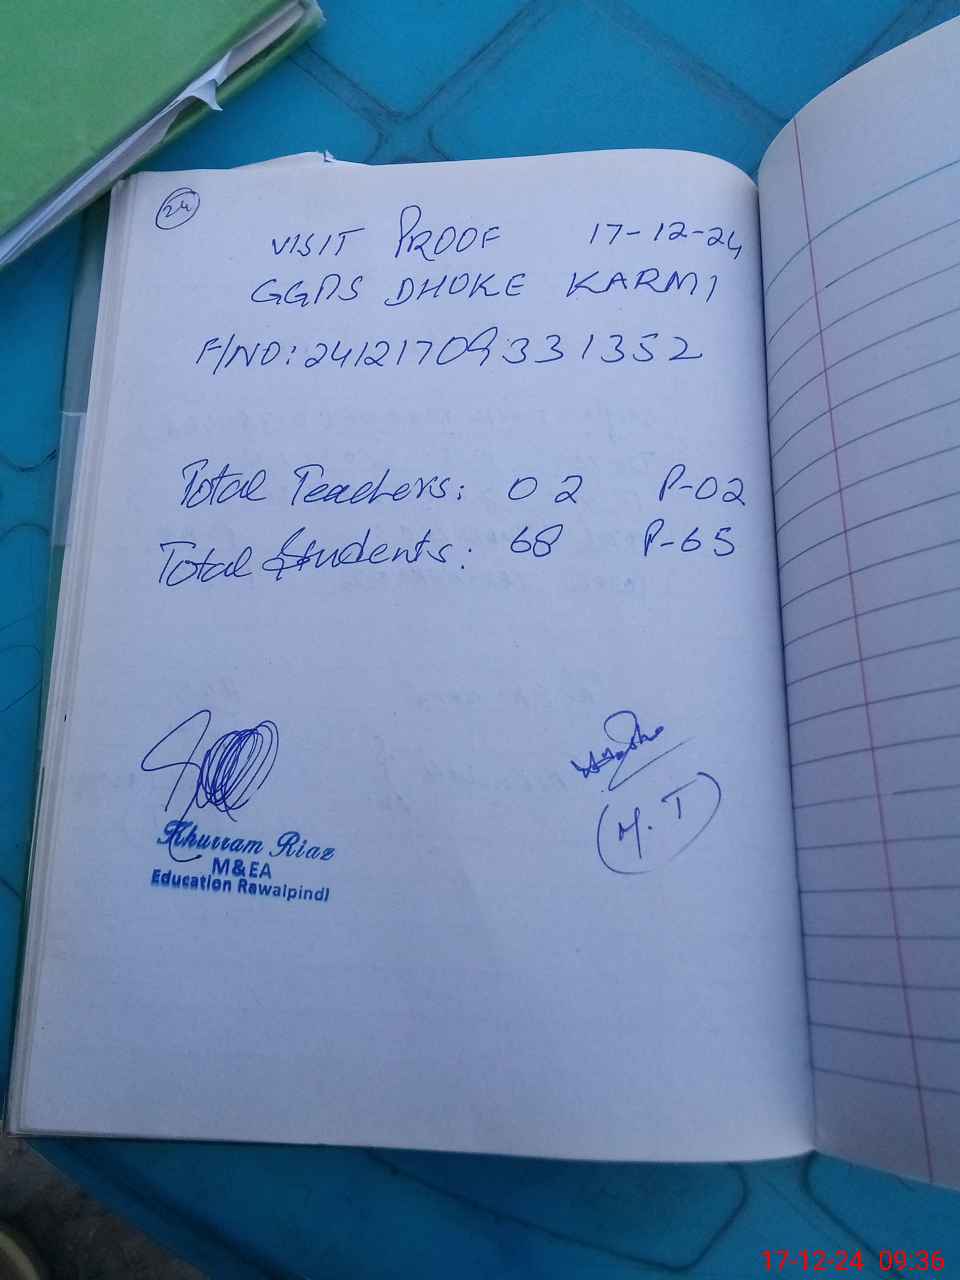 24
VISIT PROOF 17-12-24
GGPS DHOKE KARMI
F/NO: 24121709331352
Total Teachers: 02 P-02
Total Students: 68 P-65
Khurram Riaz
M&EA
Education Rawalpindi
(M.T)
17-12-24 09:36